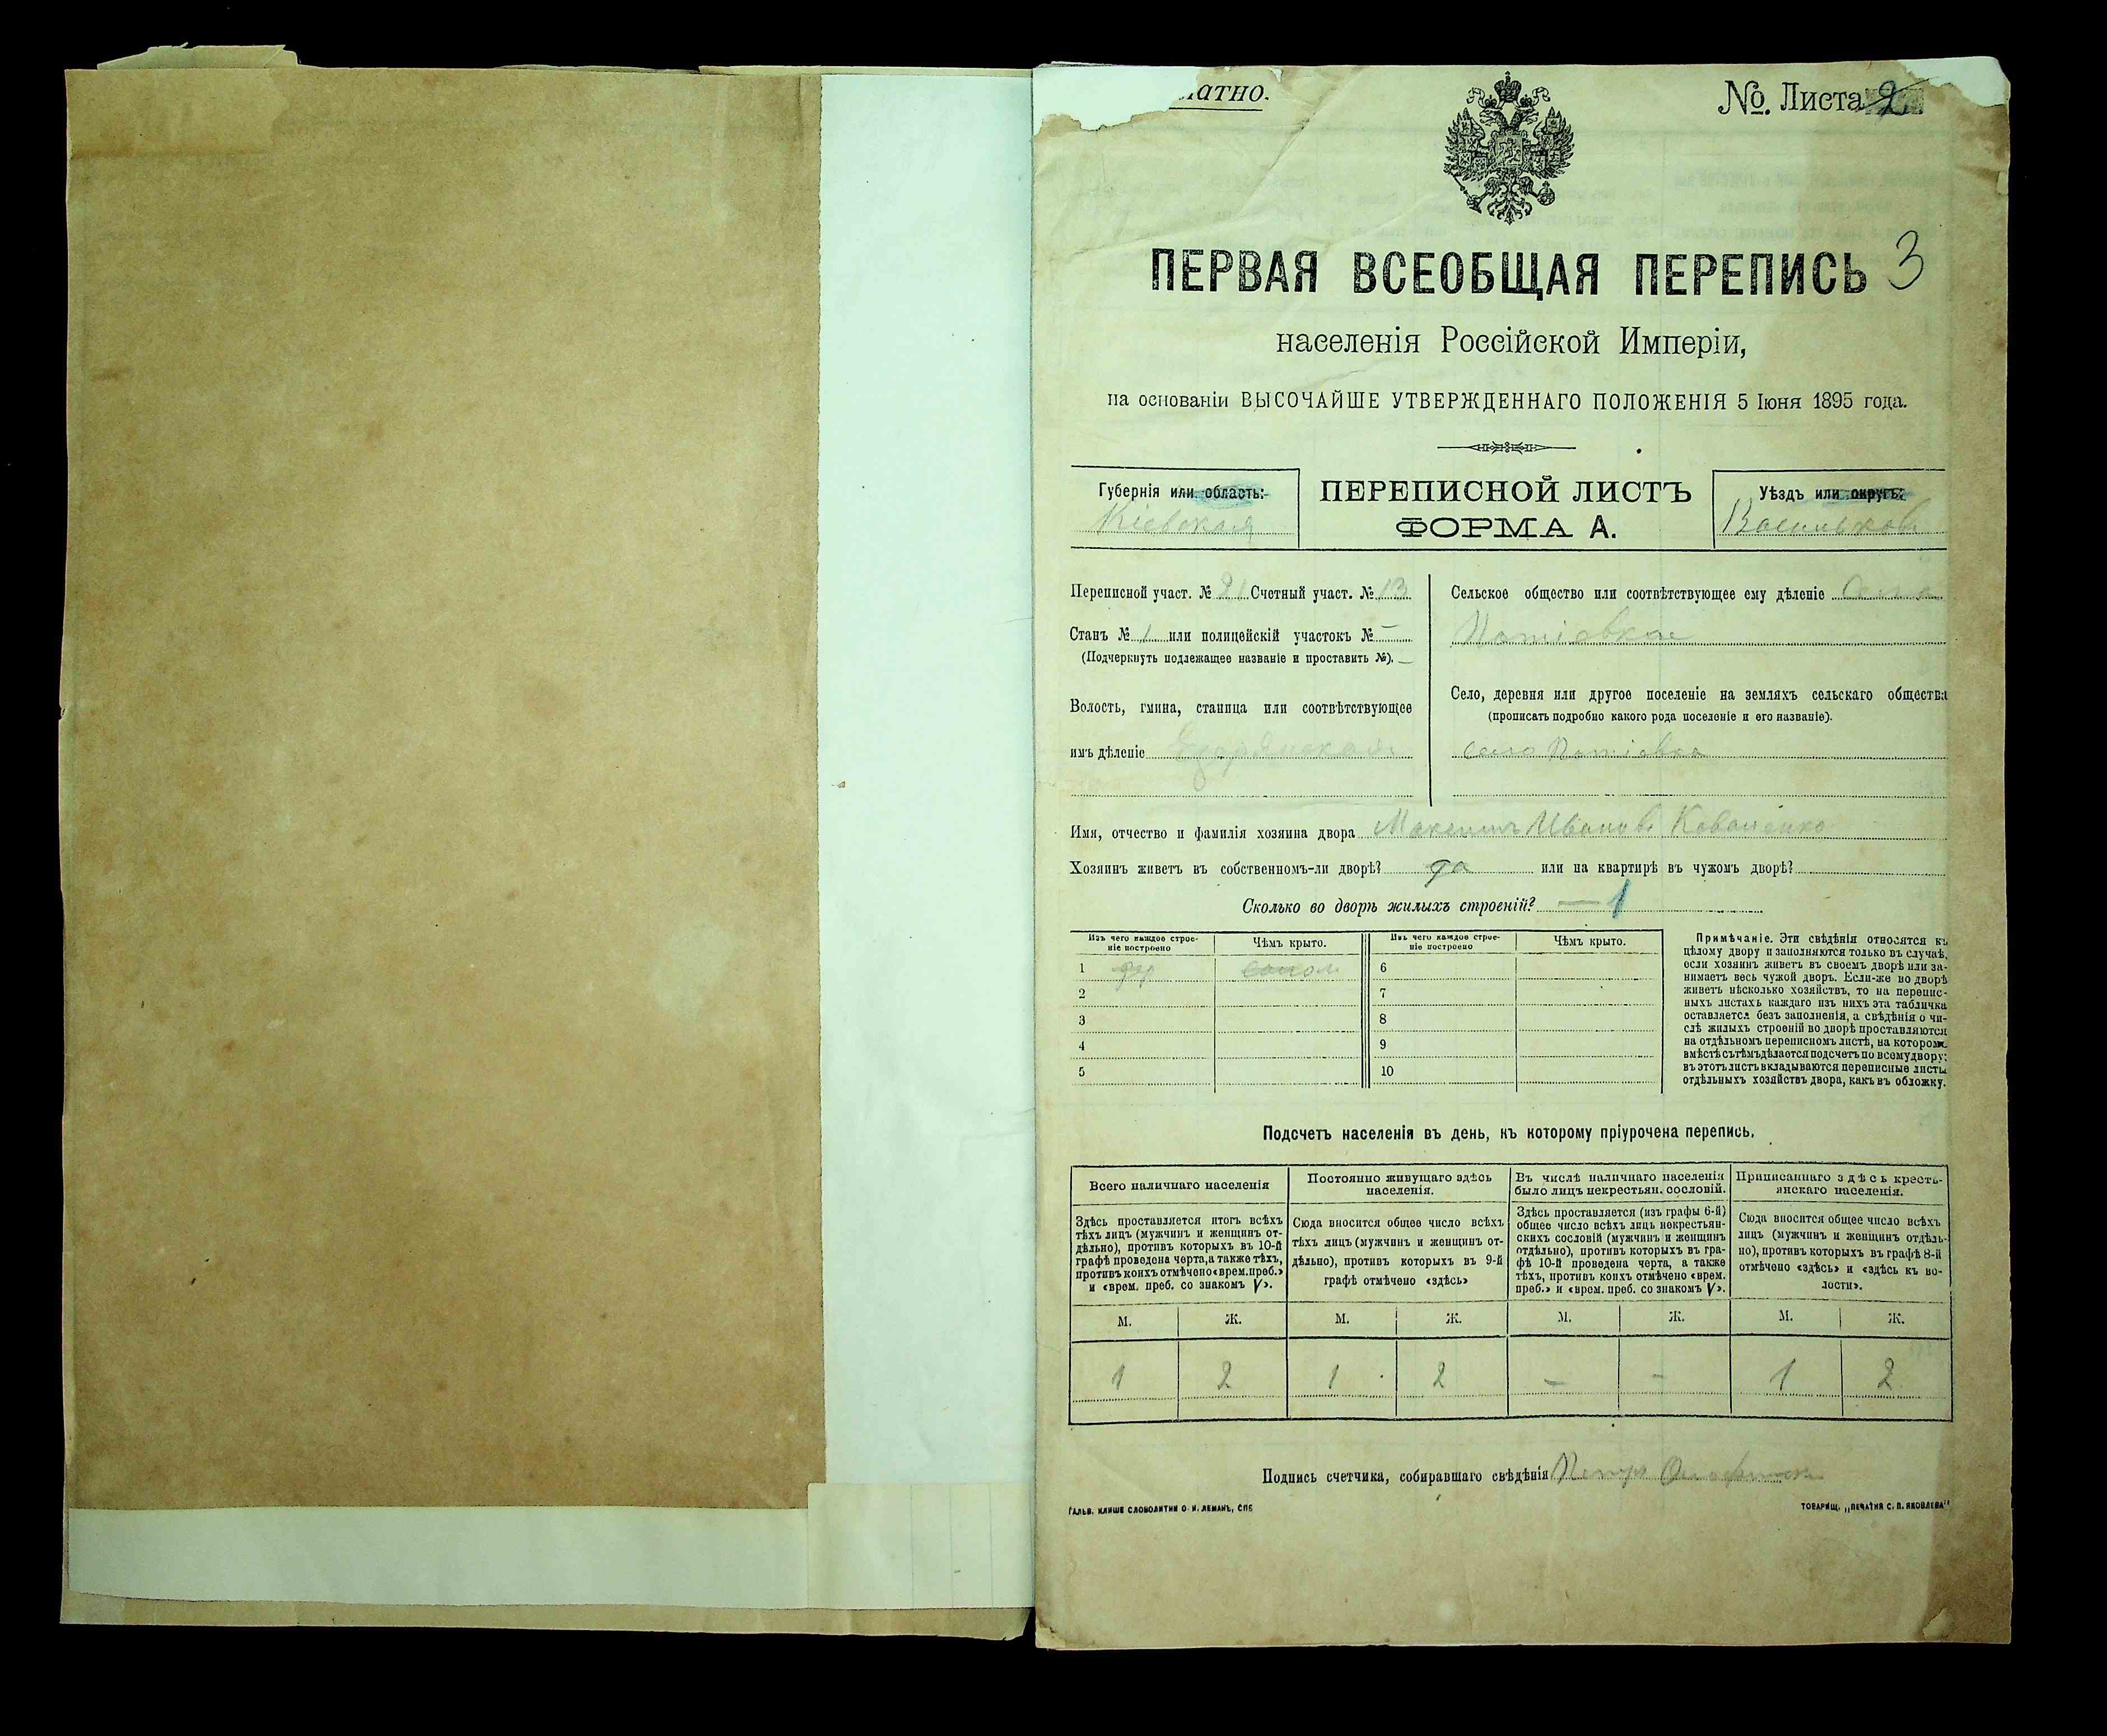 латно.
№. Листа 2
ПЕРВАЯ ВСЕОБЩАЯ ПЕРЕПИСЬ 3
населенія Россійской Имперіи,
на основаніи ВЫСОЧАЙШЕ УТВЕРЖДЕННАГО ПОЛОЖЕНІЯ 5 Іюня 1895 года.
Губернія или область:
Кіевская
ПЕРЕПИСНОЙ ЛИСТЪ
ФОРМА А.
Уѣздъ или округъ:
Васильков
Переписной участ. № 21 Счетный участ. № 13
Станъ № 1 или полицейскій участокъ № –
(Подчеркнуть подлежащее названіе и проставить №). –
Волость, гмина, станица или соотвѣтствующее
имъ дѣленіе
Сельское общество или соотвѣтствующее ему дѣленіе
Село, деревня или другое поселеніе на земляхъ сельскаго общества
(прописать подробно какого рода поселеніе и его названіе).
село Потіевка
Имя, отчество и фамилія хозяина двора Максимъ Иванов Коваленко
Хозяинъ живетъ въ собственномъ-ли дворѣ? да или на квартирѣ въ чужомъ дворѣ?
Сколько во дворѣ жилыхъ строеній? — 1
Изъ чего каждое строе-
ніе построено
Чѣмъ крыто.
Изъ чего каждое строе-
ніе построено
Чѣмъ крыто.
1 солом 6
2 7
3 8
4 9
5 10
Примѣчаніе. Эти свѣдѣнія относятся къ
цѣлому двору и заполняются только въ случаѣ,
если хозяинъ живетъ въ своемъ дворѣ или за-
нимаетъ весь чужой дворъ. Если-же во дворѣ
живетъ нѣсколько хозяйствъ, то на перепис-
ныхъ листахъ каждаго изъ нихъ эта табличка
оставляется безъ заполненія, а свѣдѣнія о чи-
слѣ жилыхъ строеній во дворѣ проставляются
на отдѣльномъ переписномъ листѣ, на которомъ
вмѣстѣ съ тѣмъ дѣлается подсчетъ по всему двору;
въ этотъ листъ вкладываются переписные листы
отдѣльныхъ хозяйствъ двора, какъ въ обложку.
Подсчетъ населенія въ день, къ которому пріурочена перепись.
Всего наличнаго населенія
Здѣсь проставляется итогъ всѣхъ
тѣхъ лицъ (мужчинъ и женщинъ от-
дѣльно), противъ которыхъ въ 10-й
графѣ проведена черта, а также тѣхъ,
противъ коихъ отмѣчено «врем. преб.»
и «врем. преб. со знакомъ V».
Постоянно живущаго здѣсь
населенія.
Сюда вносится общее число всѣхъ
тѣхъ лицъ (мужчинъ и женщинъ от-
дѣльно), противъ которыхъ въ 9-й
графѣ отмѣчено «здѣсь»
Въ числѣ наличнаго населенія
было лицъ некрестьян. сословій.
Здѣсь проставляется (изъ графы 6-й)
общее число всѣхъ лицъ некрестьян-
скихъ сословій (мужчинъ и женщинъ
отдѣльно), противъ которыхъ въ гра-
фѣ 10-й проведена черта, а также
тѣхъ, противъ коихъ отмѣчено «врем.
преб.» и «врем. преб. со знакомъ V».
Приписаннаго здѣсь кресть-
янскаго населенія.
Сюда вносится общее число всѣхъ
лицъ (мужчинъ и женщинъ отдѣль-
но), противъ которыхъ въ графѣ 8-й
отмѣчено «здѣсь» и «здѣсь къ во-
лости».
М. Ж. М. Ж. М. Ж. М. Ж.
1 2 1 2 – – 1 2
Подпись счетчика, собиравшаго свѣдѣнія Петръ
ГАЛЬВ. КЛИШЕ СЛОВОЛИТНИ О. И. ЛЕМАНЪ, СПБ
ТОВАРИЩ. „ПЕЧАТНЯ С. П. ЯКОВЛЕВА"